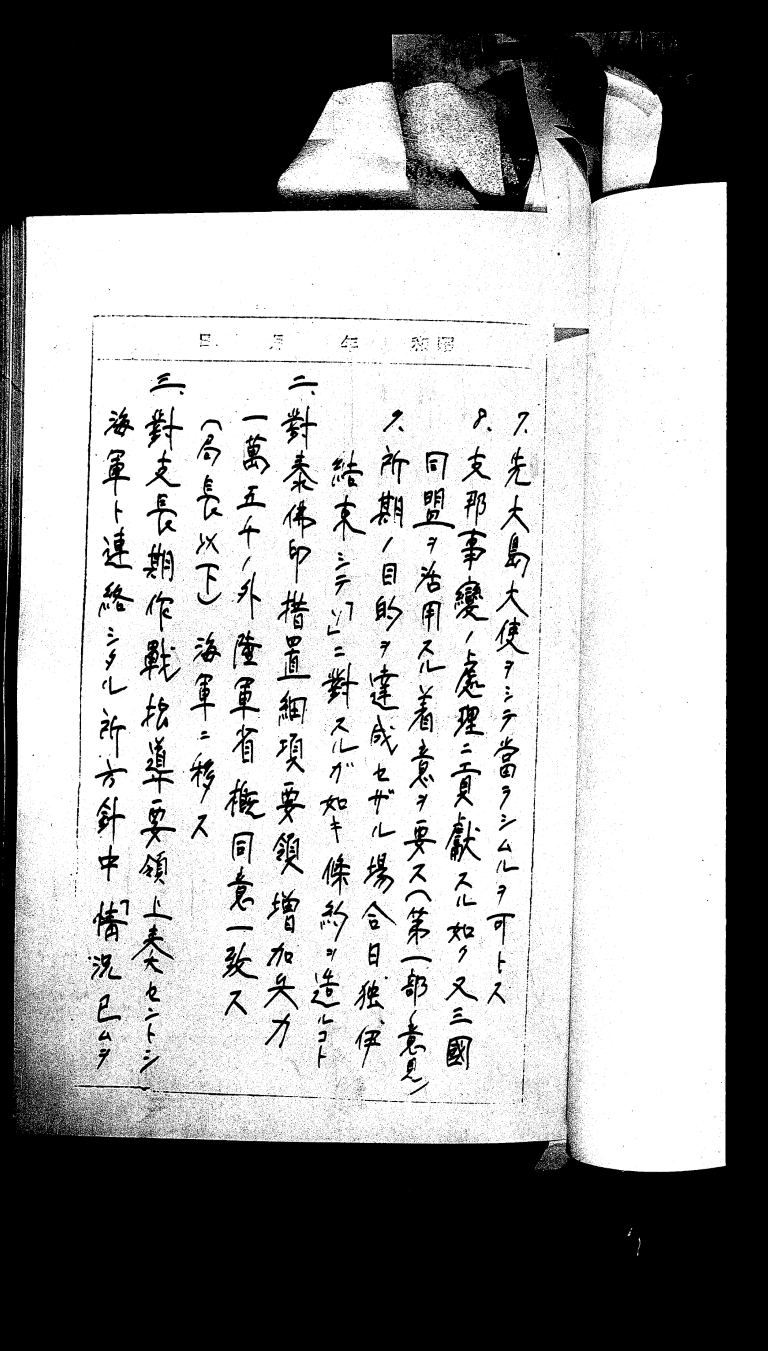 昭和 年 月 日
7、先大島大使ヲシテ當ラシムルヲ可トス
8、支那事變ノ處理ニ貢獻スル如ク又三國
同盟ヲ活用スル着意ヲ要ス(第一部ノ意見)
9、所期ノ目的ヲ達成セザル場合日、独、伊
結束シテ「ソ」ニ對スルガ如キ條約ヲ造ルコト
二、對泰佛印措置細項要領増加兵力
一萬五千ノ外陸軍省概同意一致ス
(局長以下) 海軍ニ移ス
三、對支長期作戰指導要領上奏セントシ
海軍ト連絡シタル所方針中「情況已ムヲ